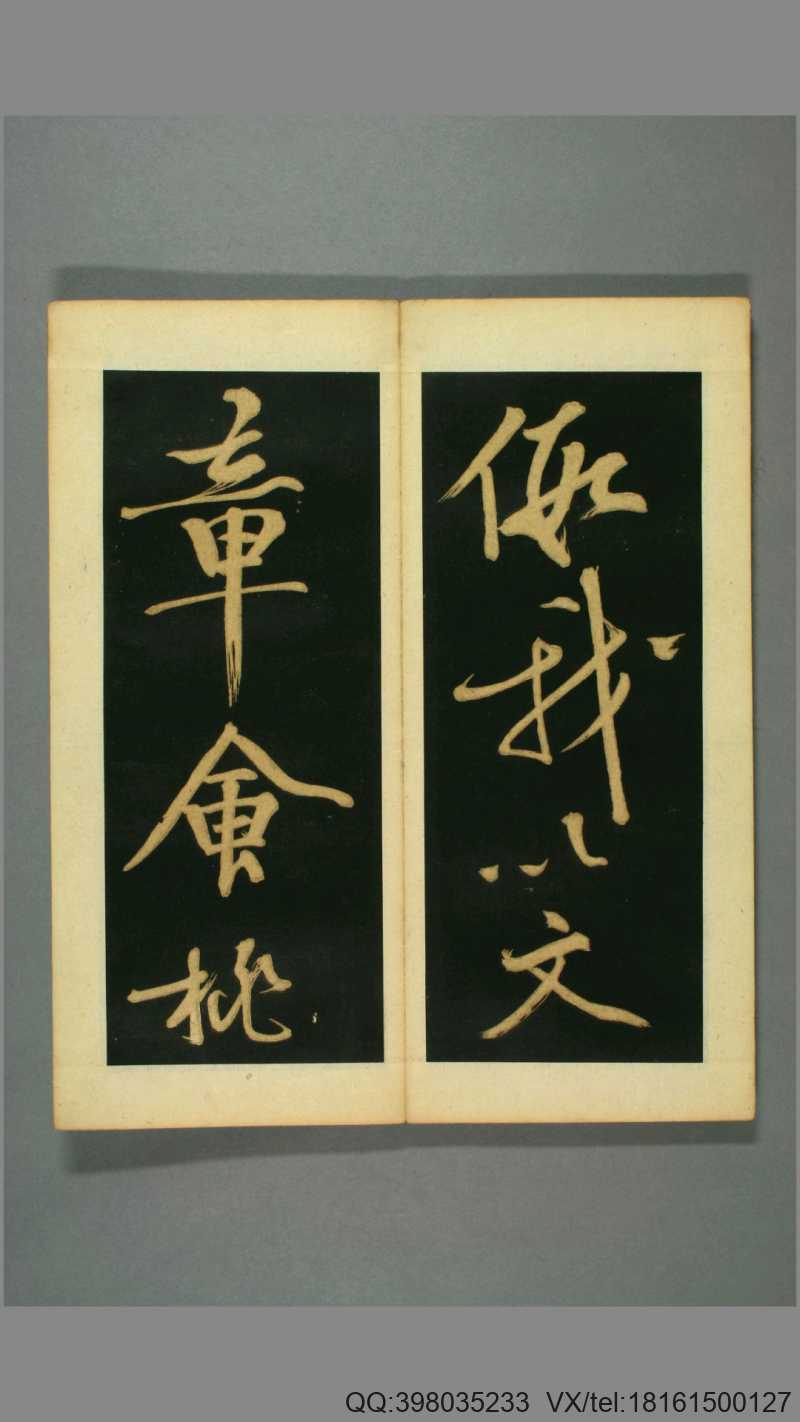 假我以文
章會桃
QQ:398035233 VX/tel:18161500127